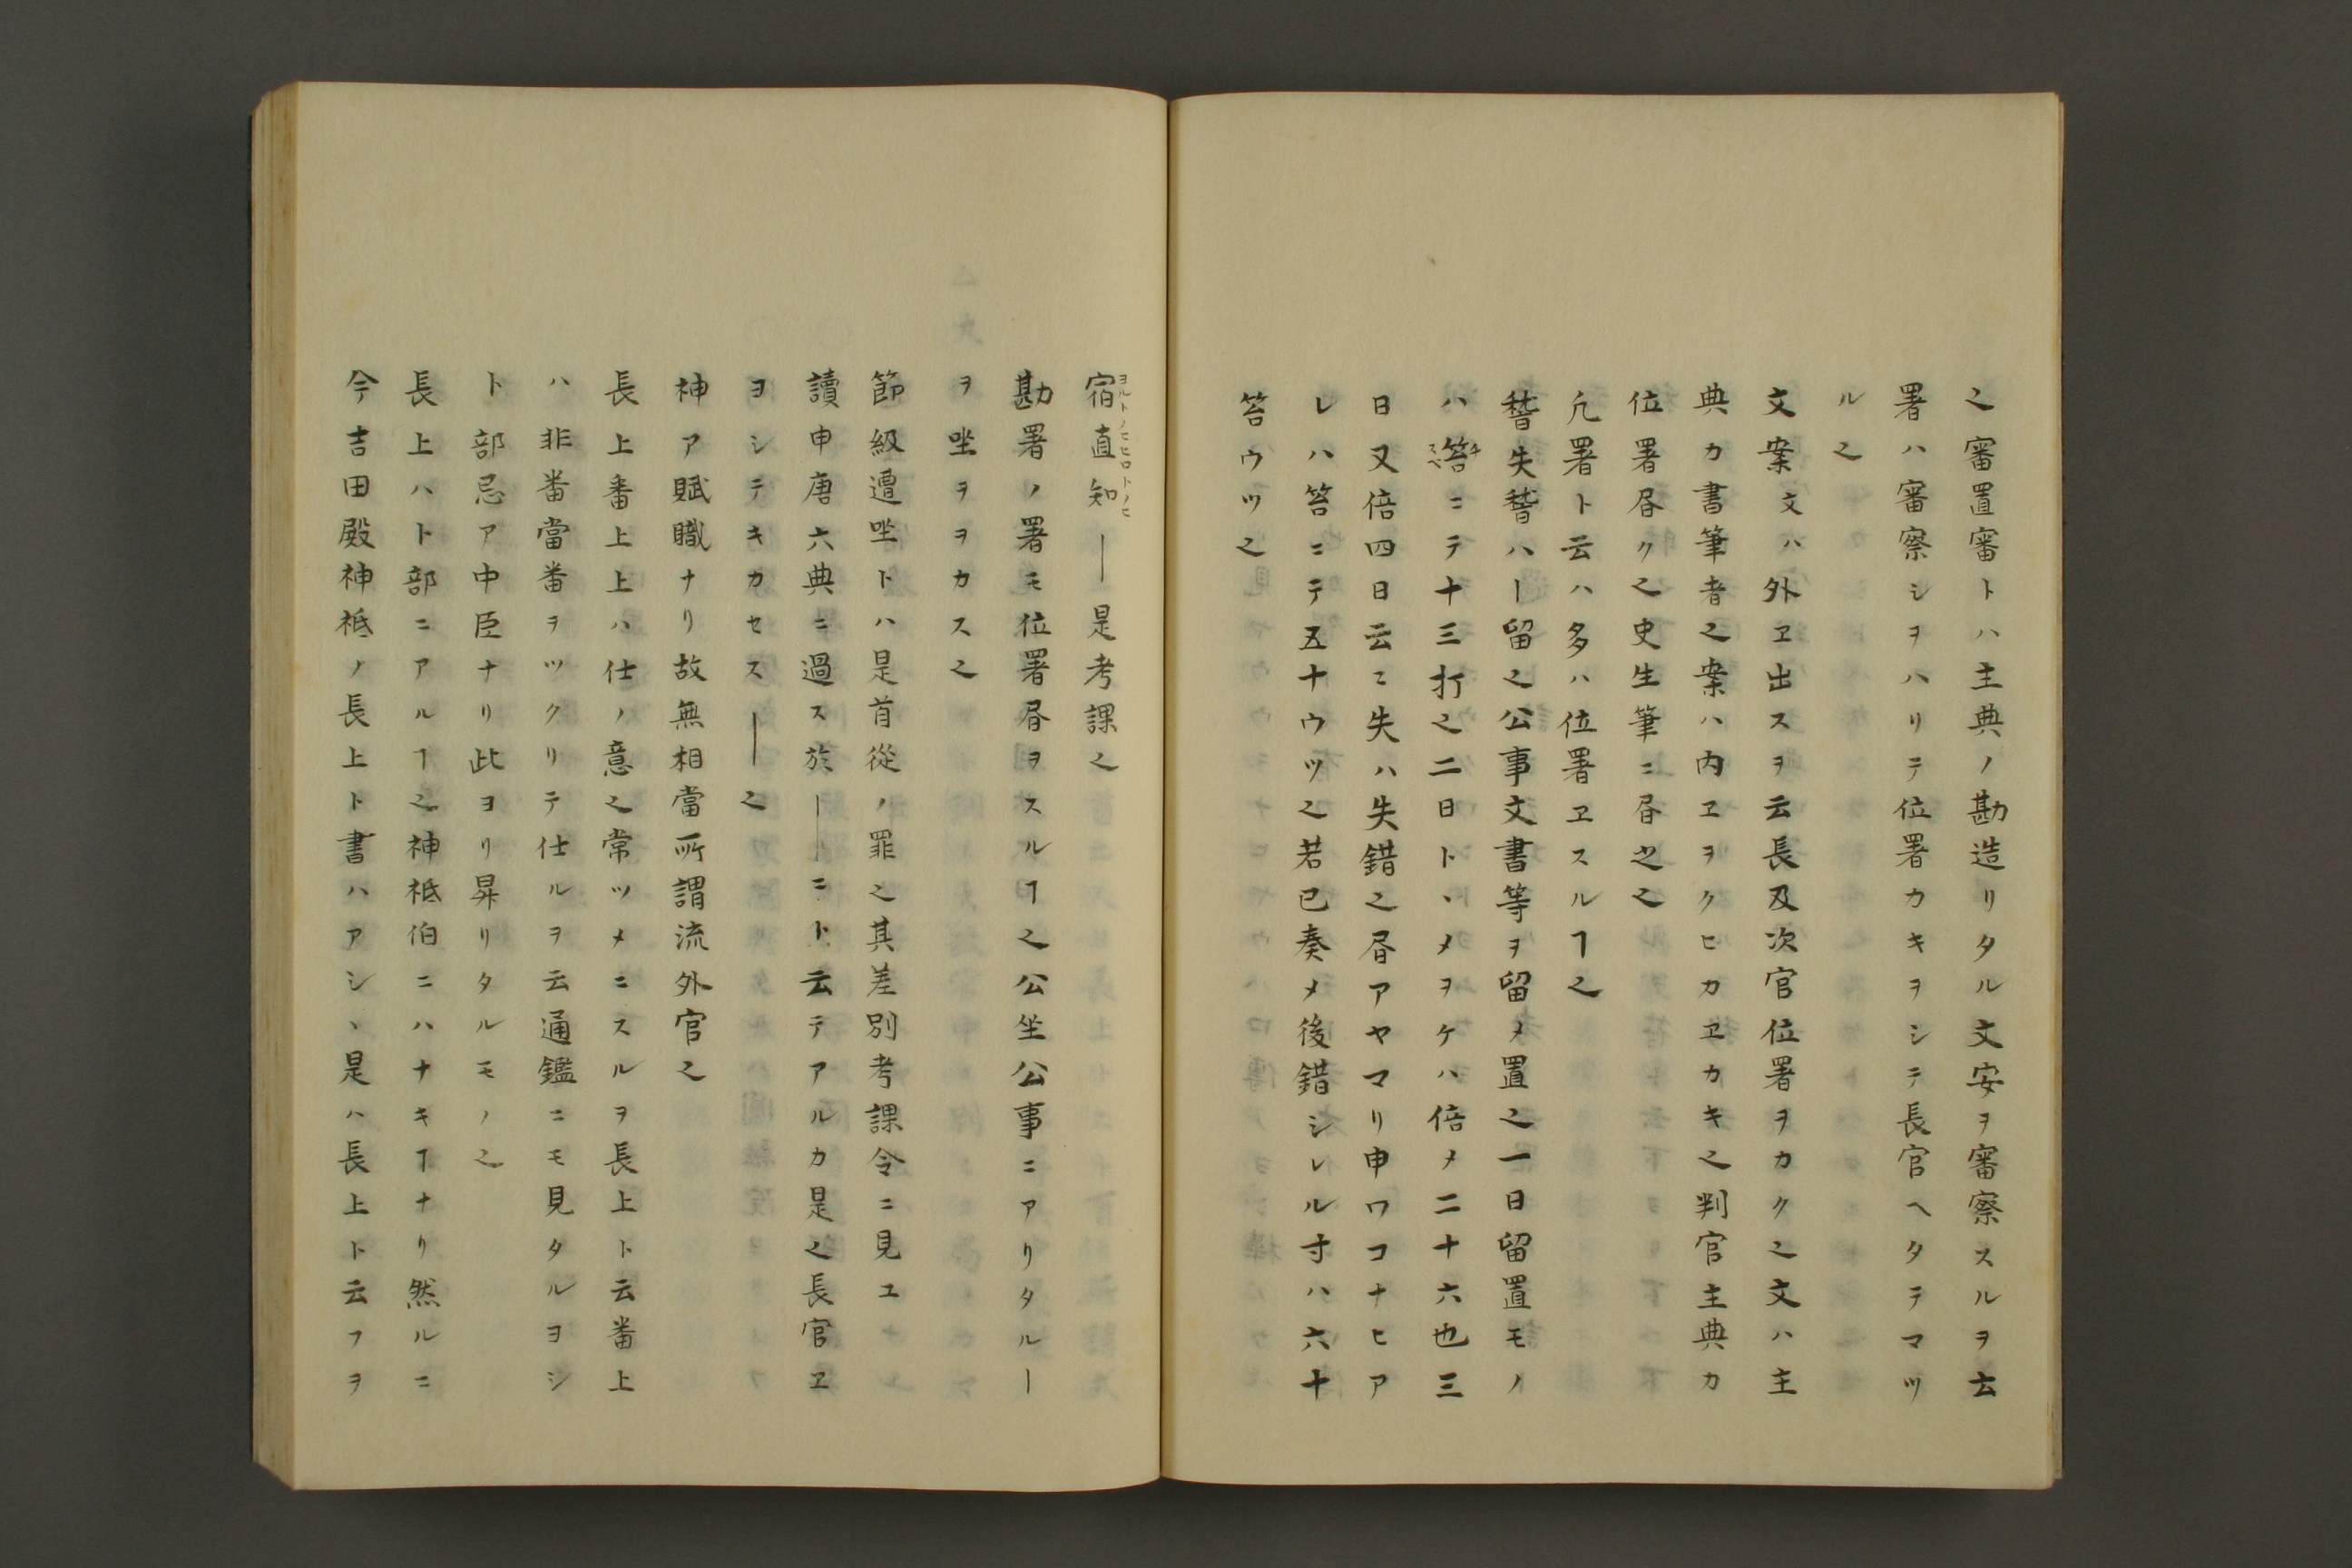 之審置審トハ主典ノ勘造リタル文安ヲ審察スルヲ云
署ハ審察シヲハリテ位署カキヲシテ長官ヘタテマツ
ル之
文案文ハ外ヱ出スヲ云長及次官位署ヲカク之文ハ主
典カ書筆者之案ハ内ヱヲクヒカヱカキ之判官主典カ
位署昏ク之史生筆ニ昏之之
凡署ト云ハ多ハ位署ヱスルヿ之
嵆失嵆ハ―留之公事文書等ヲ留メ置之一日留置モノ
ハ笞ニテ十三打之二日トヽメヲケハ倍メ二十六也三
日又倍四日云ニ失ハ失錯之昏アヤマリ申ワコナヒア
レハ笞ニテ五十ウツ之若已奏メ後錯シレル寸ハ六十
笞ウツ之
宿直知―是考課之
ヨルトノヒヒロトノヒ
勘署ノ署モ位署昏ヲスルヿ之公坐公事ニアリタル―
ヲ坐ヲヲカス之
節級遭坐トハ是首從ノ罪之其差別考課令ニ見ユ
讀申唐六典ニ過ス於――ニト云テアルカ是之長官ヱ
ヨシテキカセス―之
神ア賦職ナリ故無相當所謂流外官之
長上番上上ハ仕ノ意之常ツメニスルヲ長上ト云番上
ハ非番當番ヲツクリテ仕ルヲ云通鑑ニモ見タルヨシ
ト部忌ア中臣ナリ此ヨリ昇リタルモノ之
長上ハト部ニアルヿ之神祇伯ニハナキヿナリ然ルニ
今吉田殿神祇ノ長上ト書ハアシヽ是ハ長上ト云フヲ